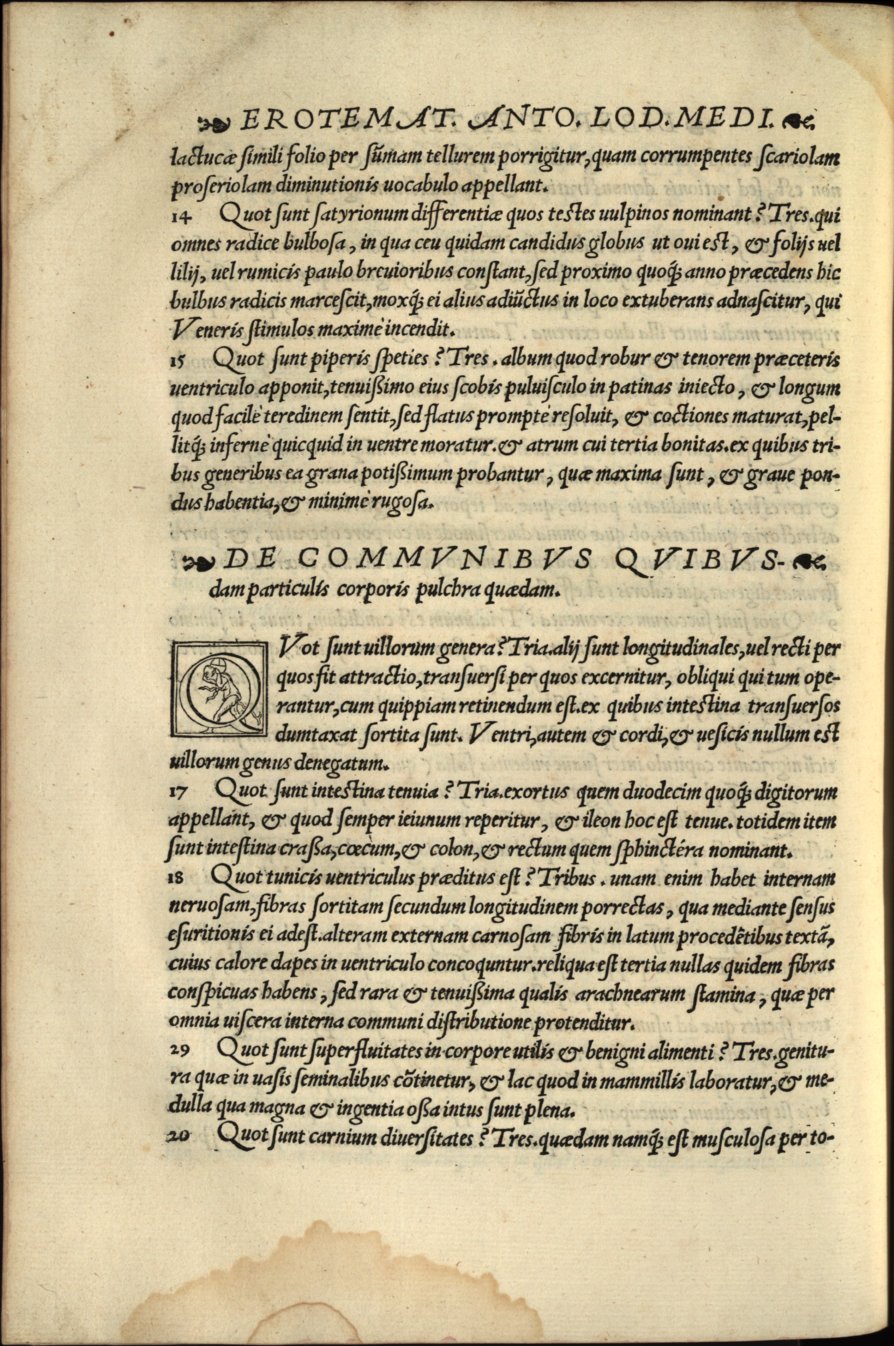 EROTEMAT. ANTO. LOD. MEDI.
lactucæ simili folio per sũmam tellurem porrigitur, quam corrumpentes scariolam
proseriolam diminutionis uocabulo appellant.
14 Quot sunt satyrionum differentiæ quos testes uulpinos nominant? Tres. qui
omnes radice bulbosa, in qua ceu quidam candidus globus ut oui est, & folijs uel
lilij, uel rumicis paulo breuioribus constant, sed proximo quoq; anno præcedens hic
bulbus radicis marcescit, moxq; ei alius adiũctus in loco extuberans adnascitur, qui
Veneris stimulos maximè incendit.
15 Quot sunt piperis speties? Tres. album quod robur & tenorem præceteris
uentriculo apponit, tenuißimo eius scobis puluisculo in patinas iniecto, & longum
quod facilè teredinem sentit, sed flatus promptè resoluit, & coctiones maturat, pel-
litq; infernè quicquid in uentre moratur. & atrum cui tertia bonitas. ex quibus tri-
bus generibus ea grana potißimum probantur, quæ maxima sunt, & graue pon-
dus habentia, & minimè rugosa.
DE COMMVNIBVS QVIBVS-
dam particulis corporis pulchra quædam.
QVot sunt uillorum genera? Tria. alij sunt longitudinales, uel recti per
quos fit attractio, transuersi per quos excernitur, obliqui qui tum ope-
rantur, cum quippiam retinendum est. ex quibus intestina transuersos
dumtaxat sortita sunt. Ventri, autem & cordi, & uesicis nullum est
uillorum genus denegatum.
17 Quot sunt intestina tenuia? Tria. exortus quem duodecim quoq; digitorum
appellant, & quod semper ieiunum reperitur, & ileon hoc est tenue. totidem item
sunt intestina craßa, cœcum, & colon, & rectum quem sphinctéra nominant.
18 Quot tunicis uentriculus præditus est? Tribus. unam enim habet internam
neruosam, fibras sortitam secundum longitudinem porrectas, qua mediante sensus
esuritionis ei adest. alteram externam carnosam fibris in latum procedẽtibus textã,
cuius calore dapes in uentriculo concoquntur. reliqua est tertia nullas quidem fibras
conspicuas habens, sed rara & tenuißima qualis arachnearum stamina, quæ per
omnia uiscera interna communi distributione protenditur.
29 Quot sunt superfluitates in corpore utilis & benigni alimenti? Tres. genitu-
ra quæ in uasis seminalibus cõtinetur, & lac quod in mammillis laboratur, & me-
dulla qua magna & ingentia oßa intus sunt plena.
20 Quot sunt carnium diuersitates? Tres. quædam namq; est musculosa per to-